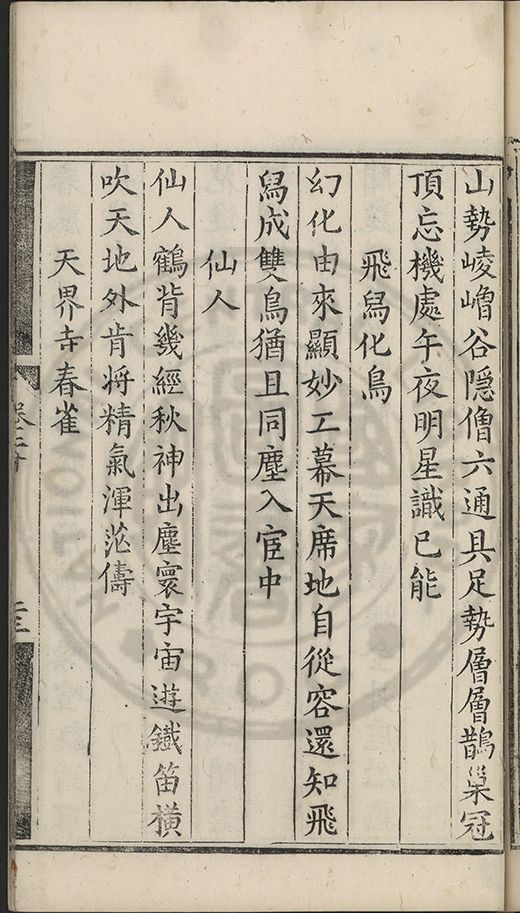 山勢崚嶒谷隠僧六通具足勢層層鵲巢冠
頂忘機處午夜明星識已能
飛舄化鳥
幻化由來顯妙工幕天席地自從容還知飛
舄成雙鳥猶且同塵入宦中
仙人
仙人鶴背幾經秋神出塵寰宇宙遊鐵笛橫
吹天地外肯將精氣渾茫儔
天界寺春雀
卷二十
二三